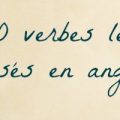 0 verbes le
sés en ang